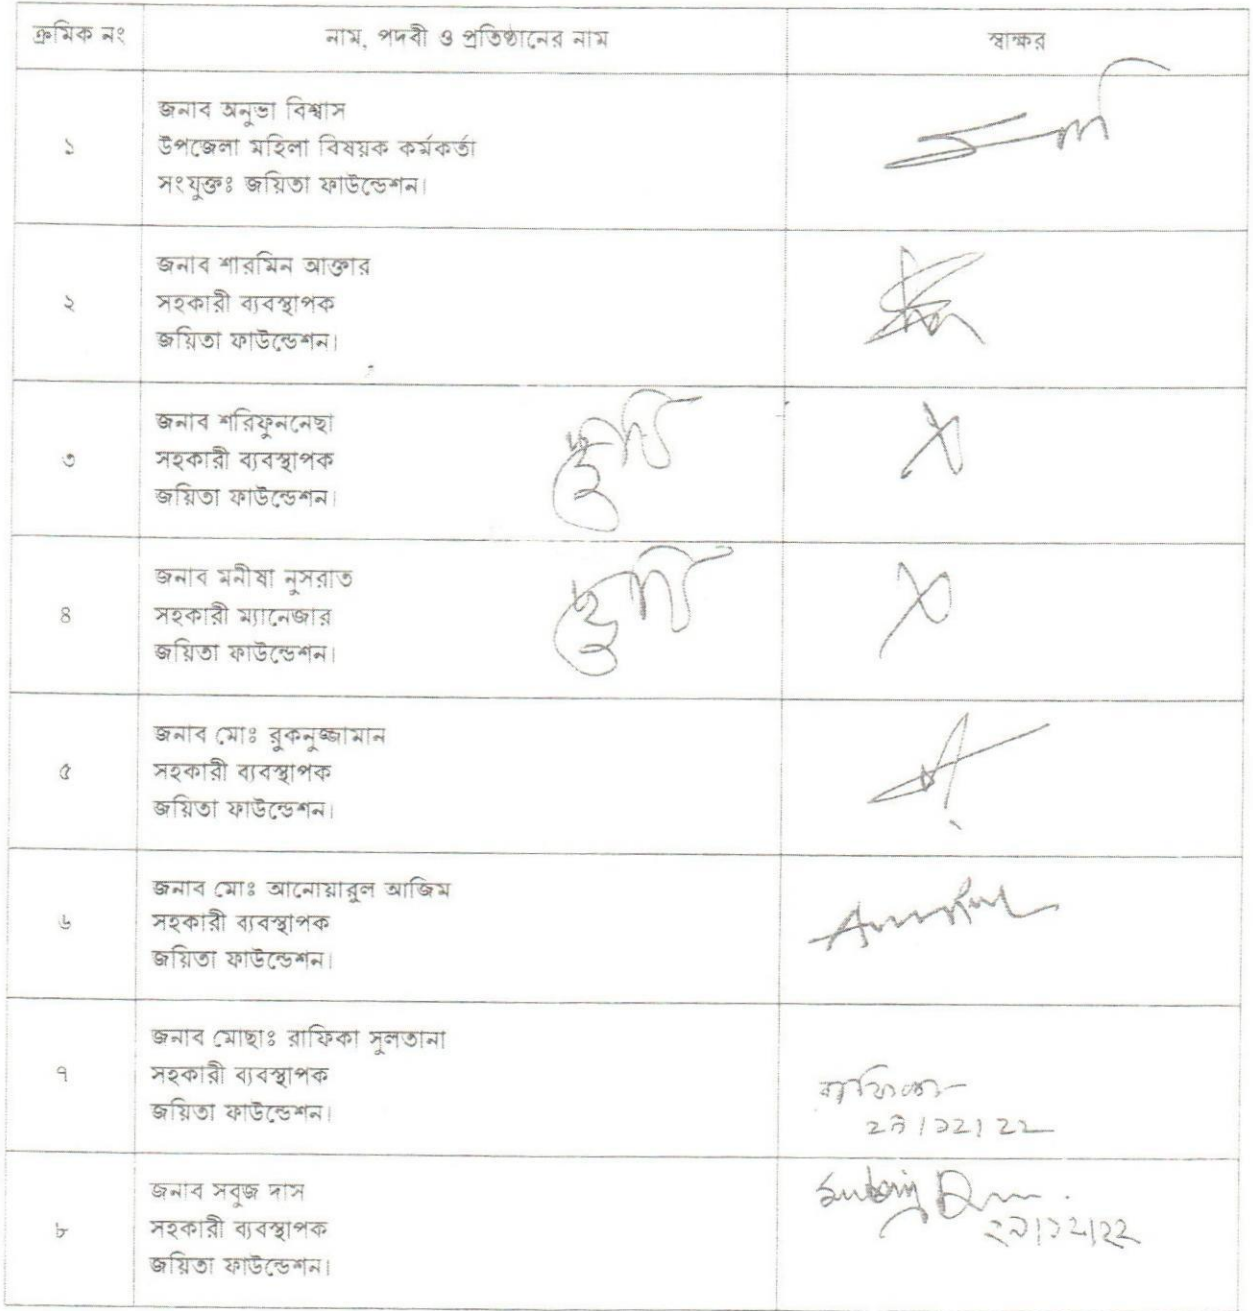 ক্রমিক নং নাম, পদবী ও প্রতিষ্ঠানের নাম স্বাক্ষর
জনাব অনুভা বিশ্বাস
১ উপজেলা মহিলা বিষয়ক কর্মকর্তা
সংযুক্তঃ জয়িতা ফাউন্ডেশন।
জনাব শারমিন আক্তার
২ সহকারী ব্যবস্থাপক
জয়িতা ফাউন্ডেশন।
জনাব শরিফুননেছা
৩ সহকারী ব্যবস্থাপক ছুটি
জয়িতা ফাউন্ডেশন।
জনাব মনীষা নুসরাত
৪ সহকারী ম্যানেজার ছুটি
জয়িতা ফাউন্ডেশন।
জনাব মোঃ রুকনুজ্জামান
৫ সহকারী ব্যবস্থাপক
জয়িতা ফাউন্ডেশন।
জনাব মোঃ আনোয়ারুল আজিম
৬ সহকারী ব্যবস্থাপক
জয়িতা ফাউন্ডেশন।
জনাব মোছাঃ রাফিকা সুলতানা
৭ সহকারী ব্যবস্থাপক রাফিকা
জয়িতা ফাউন্ডেশন। ২৯/১২/২২
জনাব সবুজ দাস
৮ সহকারী ব্যবস্থাপক ২৯/১২/২২
জয়িতা ফাউন্ডেশন।